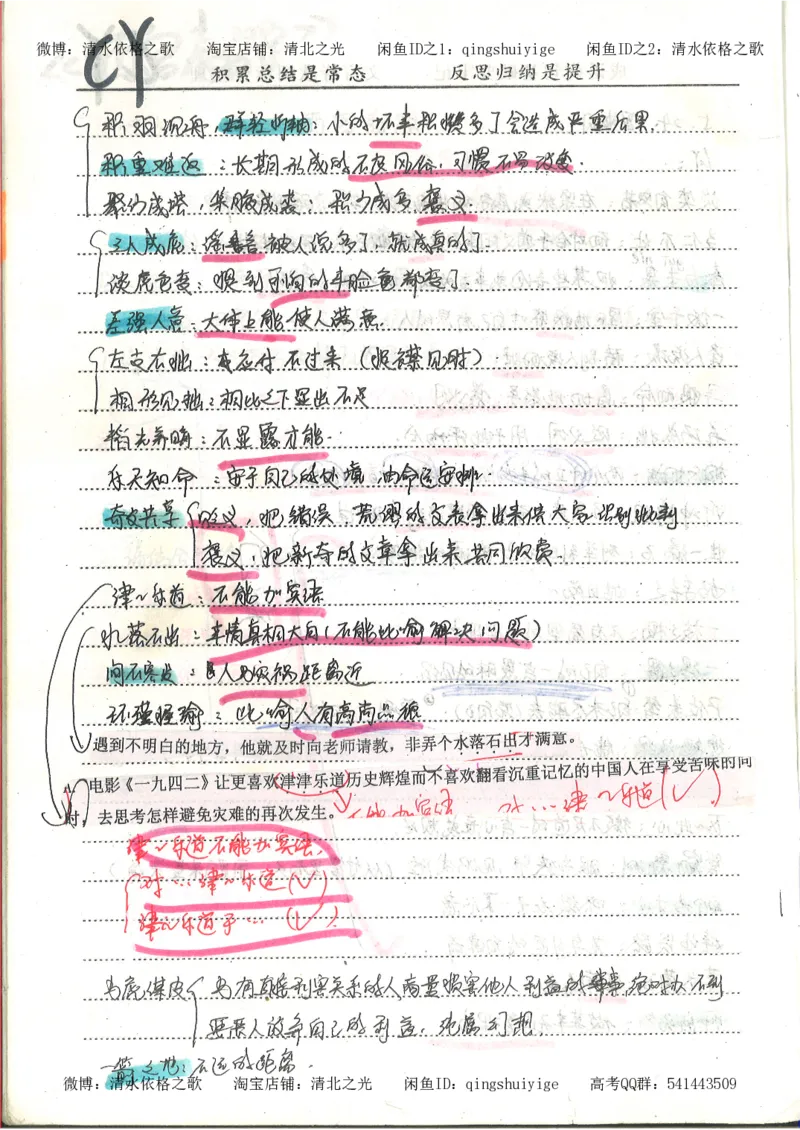 微博：清水依格之歌 淘宝店铺：清北之光 闲鱼ID之1：qingshuiyige 闲鱼ID之2：清水依格之歌
CY
积累总结是常态 反思归纳是提升
积羽沉舟，群轻折轴：小的坏事积攒多了会造成严重后果.
积重难返：长期形成的不良风俗，习惯不易改变.
聚沙成塔，集腋成裘：积少成多，褒义.
三人成虎：谣言被人说多了，就成真的了.
谈虎色变：提到可怕的事脸色都变了.
差强人意：大体上能使人满意.
左支右绌：应付不过来（捉襟见肘）
相形见绌：相比之下显出不足
韬光养晦：不显露才能.
乐天知命：安于自己的处境，由命运安排.
奇文共享 贬义，把错误，荒谬的文章拿出来供大家识别批判
褒义：把新奇的文章拿出来共同欣赏
津~乐道：不能加宾语
水落石出：事情真相大白（不能比喻解决问题）
间不容发：与灾祸距离近
怀瑾握瑜：比喻人有高尚品德
遇到不明白的地方，他就及时向老师请教，非弄个水落石出才满意。
电影《一九四二》让更喜欢津津乐道历史辉煌而不喜欢翻看沉重记忆的中国人在享受苦味的同
时，去思考怎样避免灾难的再次发生。 不能加宾语 对…津~乐道(√)
津~乐道不能加宾语.
对…津~乐道(√)
津~乐道于…(√)
与虎谋皮 与有直接利害关系的人商量损害他人利益的事，绝对办不到
要坏人放弃自己的利益，
一箭之地：不远的距离.
微博：清水依格之歌 淘宝店铺：清北之光 闲鱼ID：qingshuiyige 高考QQ群：541443509